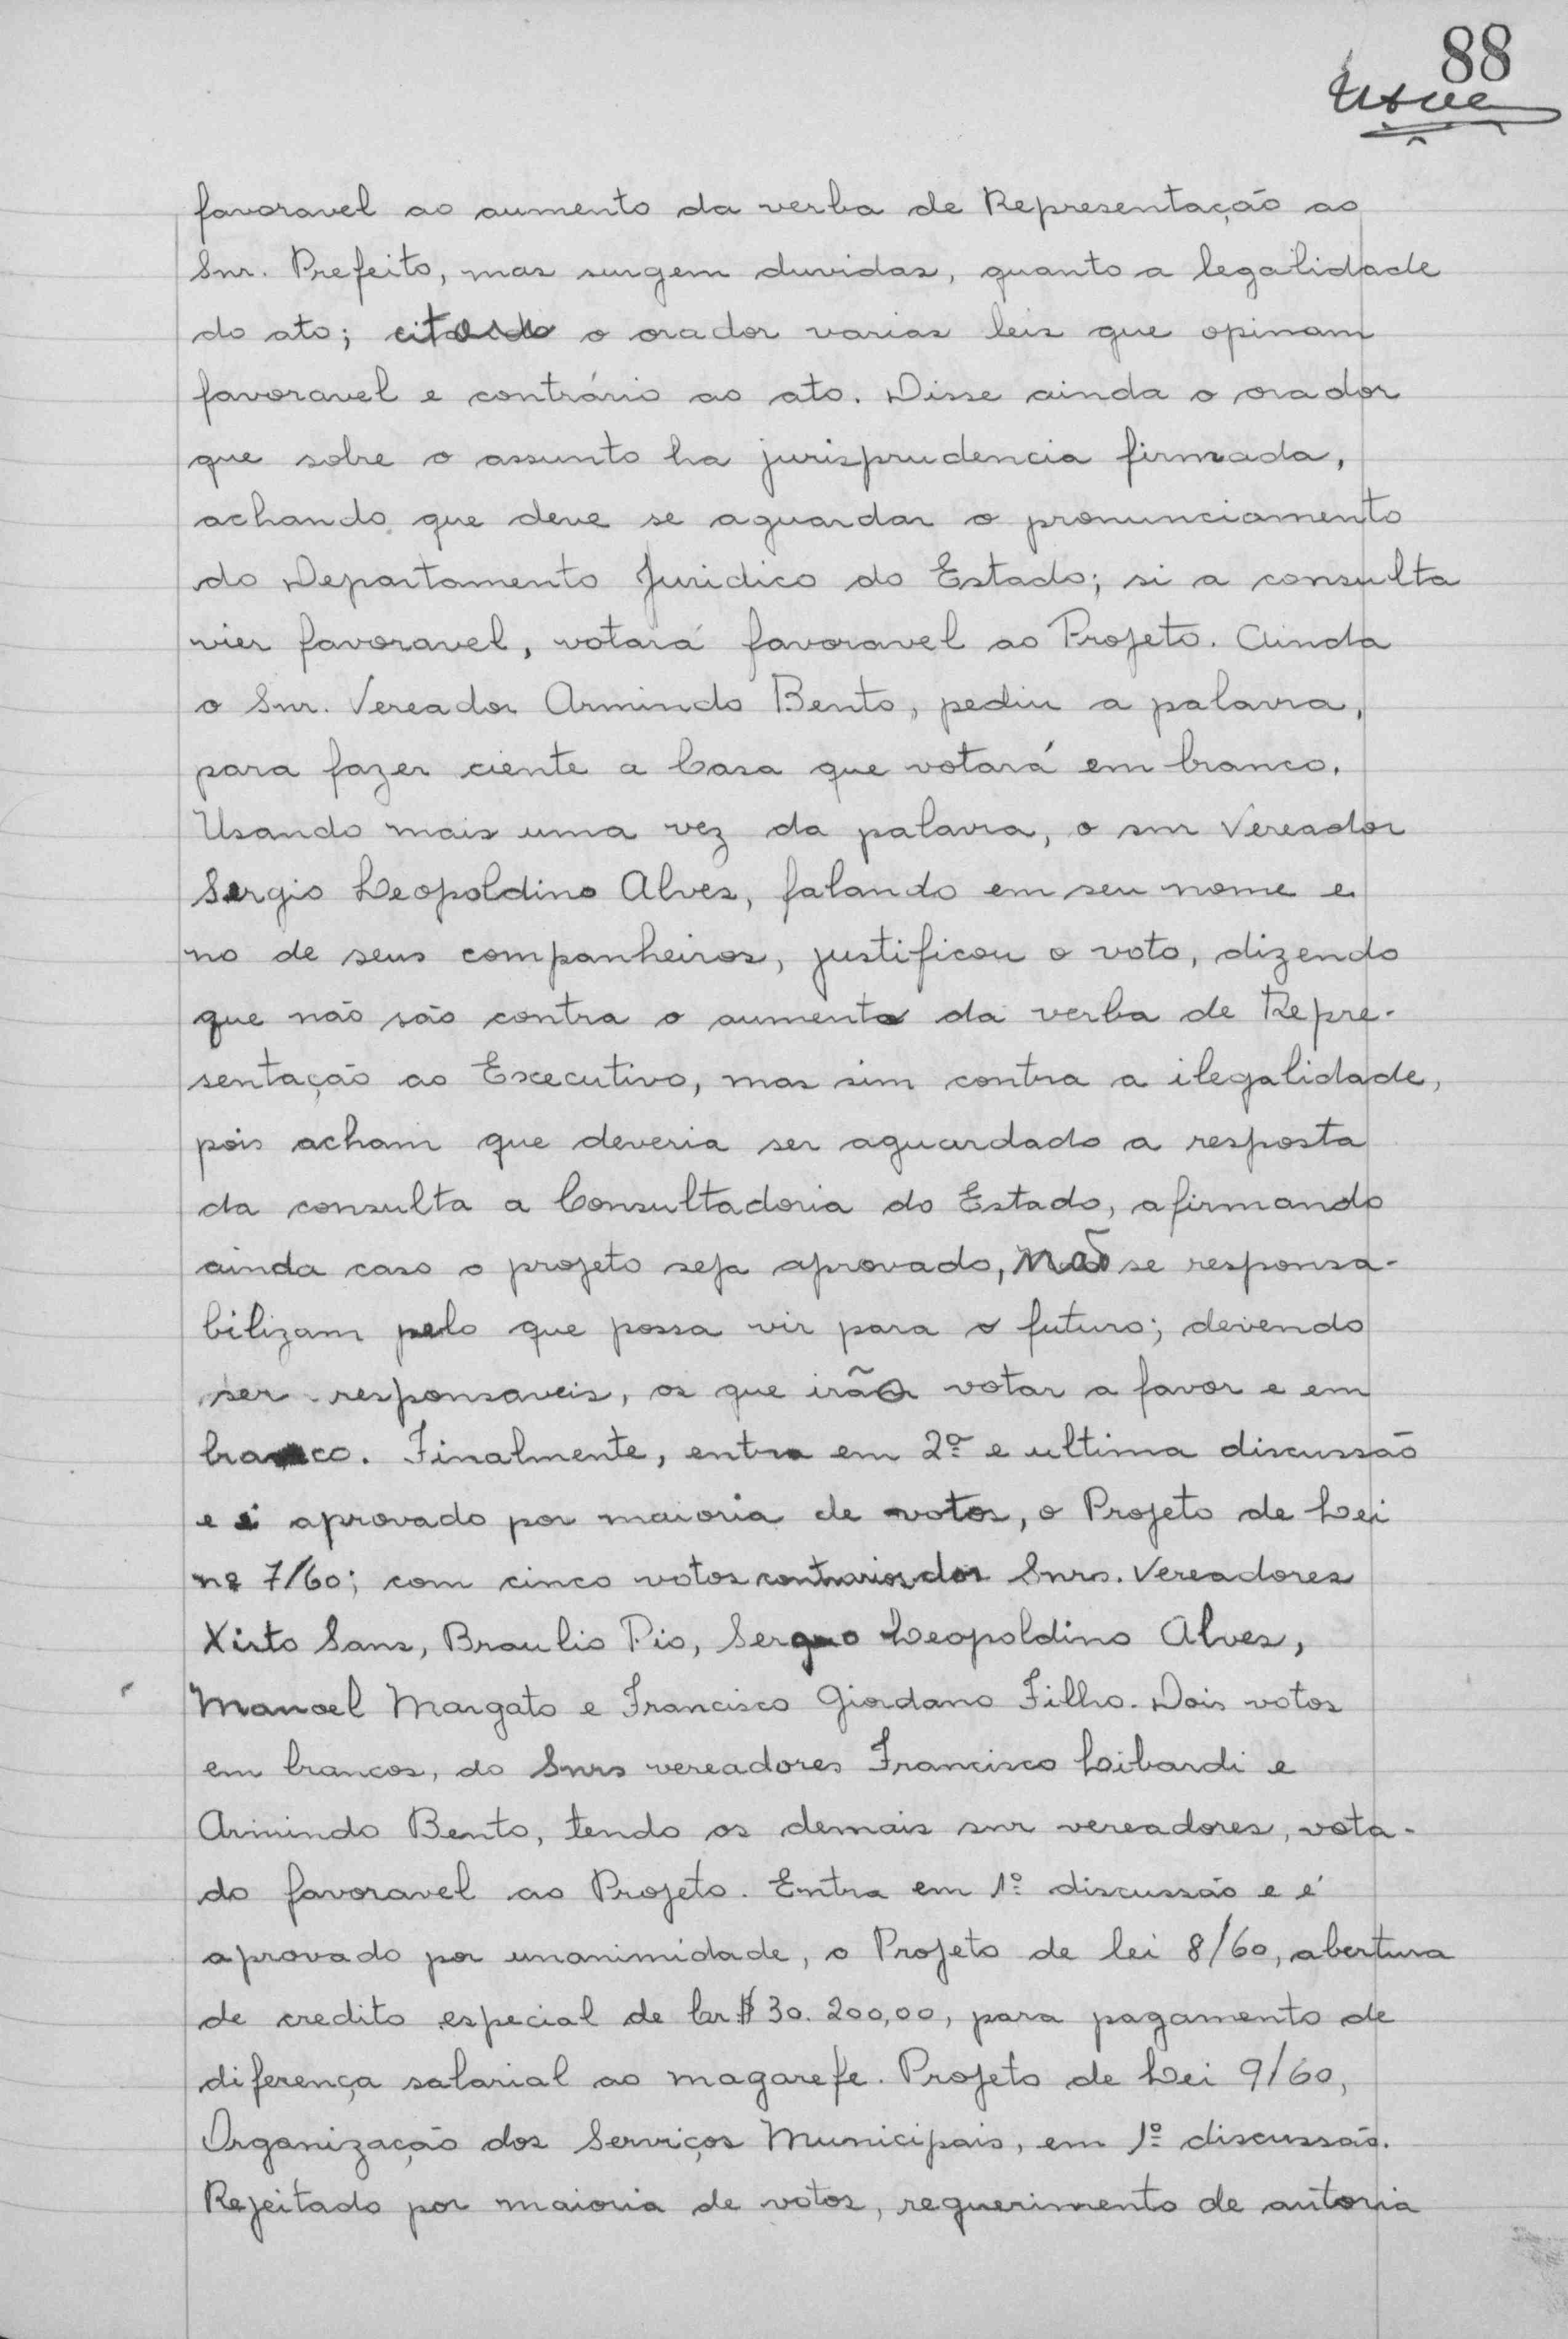 88
favoravel ao aumento da verba de Representação ao
Snr. Prefeito, mas surgem duvidas, quanto a legalidade
do ato; citando o orador varias leis que opinam
favoravel e contrário ao ato. Disse ainda o orador
que sobre o assunto ha jurisprudencia firmada,
achando que deve se aguardar o pronunciamento
do Departamento Juridico do Estado; si a consulta
vier favoravel, votará favoravel ao Projeto. Ainda
o Snr. Vereador Armindo Bento, pediu a palavra,
para fazer ciente a Casa que votará em branco.
Usando mais uma vez da palavra, o snr Vereador
Sergio Leopoldino Alves, falando em seu nome e
no de seus companheiros, justificou o voto, dizendo
que não são contra o aumento da verba de Repre-
sentação ao Executivo, mas sim contra a ilegalidade,
pois acham que deveria ser aguardado a resposta
da consulta a Consultadoria do Estado, afirmando
ainda caso o projeto seja aprovado, não se responsa-
bilizam pelo que possa vir para o futuro; devendo
ser responsaveis, os que irão votar a favor e em
branco. Finalmente, entra em 2ª e ultima discussão
e é aprovado por maioria de votos, o Projeto de Lei
nº 7/60; com cinco votos contrarios dos Snrs. Vereadores
Xisto Sans, Braulio Pio, Sergio Leopoldino Alves,
Manoel Margato e Francisco Giordano Filho. Dois votos
em brancos, do Snrs vereadores Francisco Libardi e
Armindo Bento, tendo os demais snr vereadores, vota-
do favoravel ao Projeto. Entra em 1º discussão e é
aprovado por unanimidade, o Projeto de lei 8/60, abertura
de credito especial de Cr$ 30.200,00, para pagamento de
diferença salarial ao magarefe. Projeto de Lei 9/60,
Organização dos Serviços Municipais, em 1º discussão.
Rejeitado por maioria de votos, requerimento de autoria